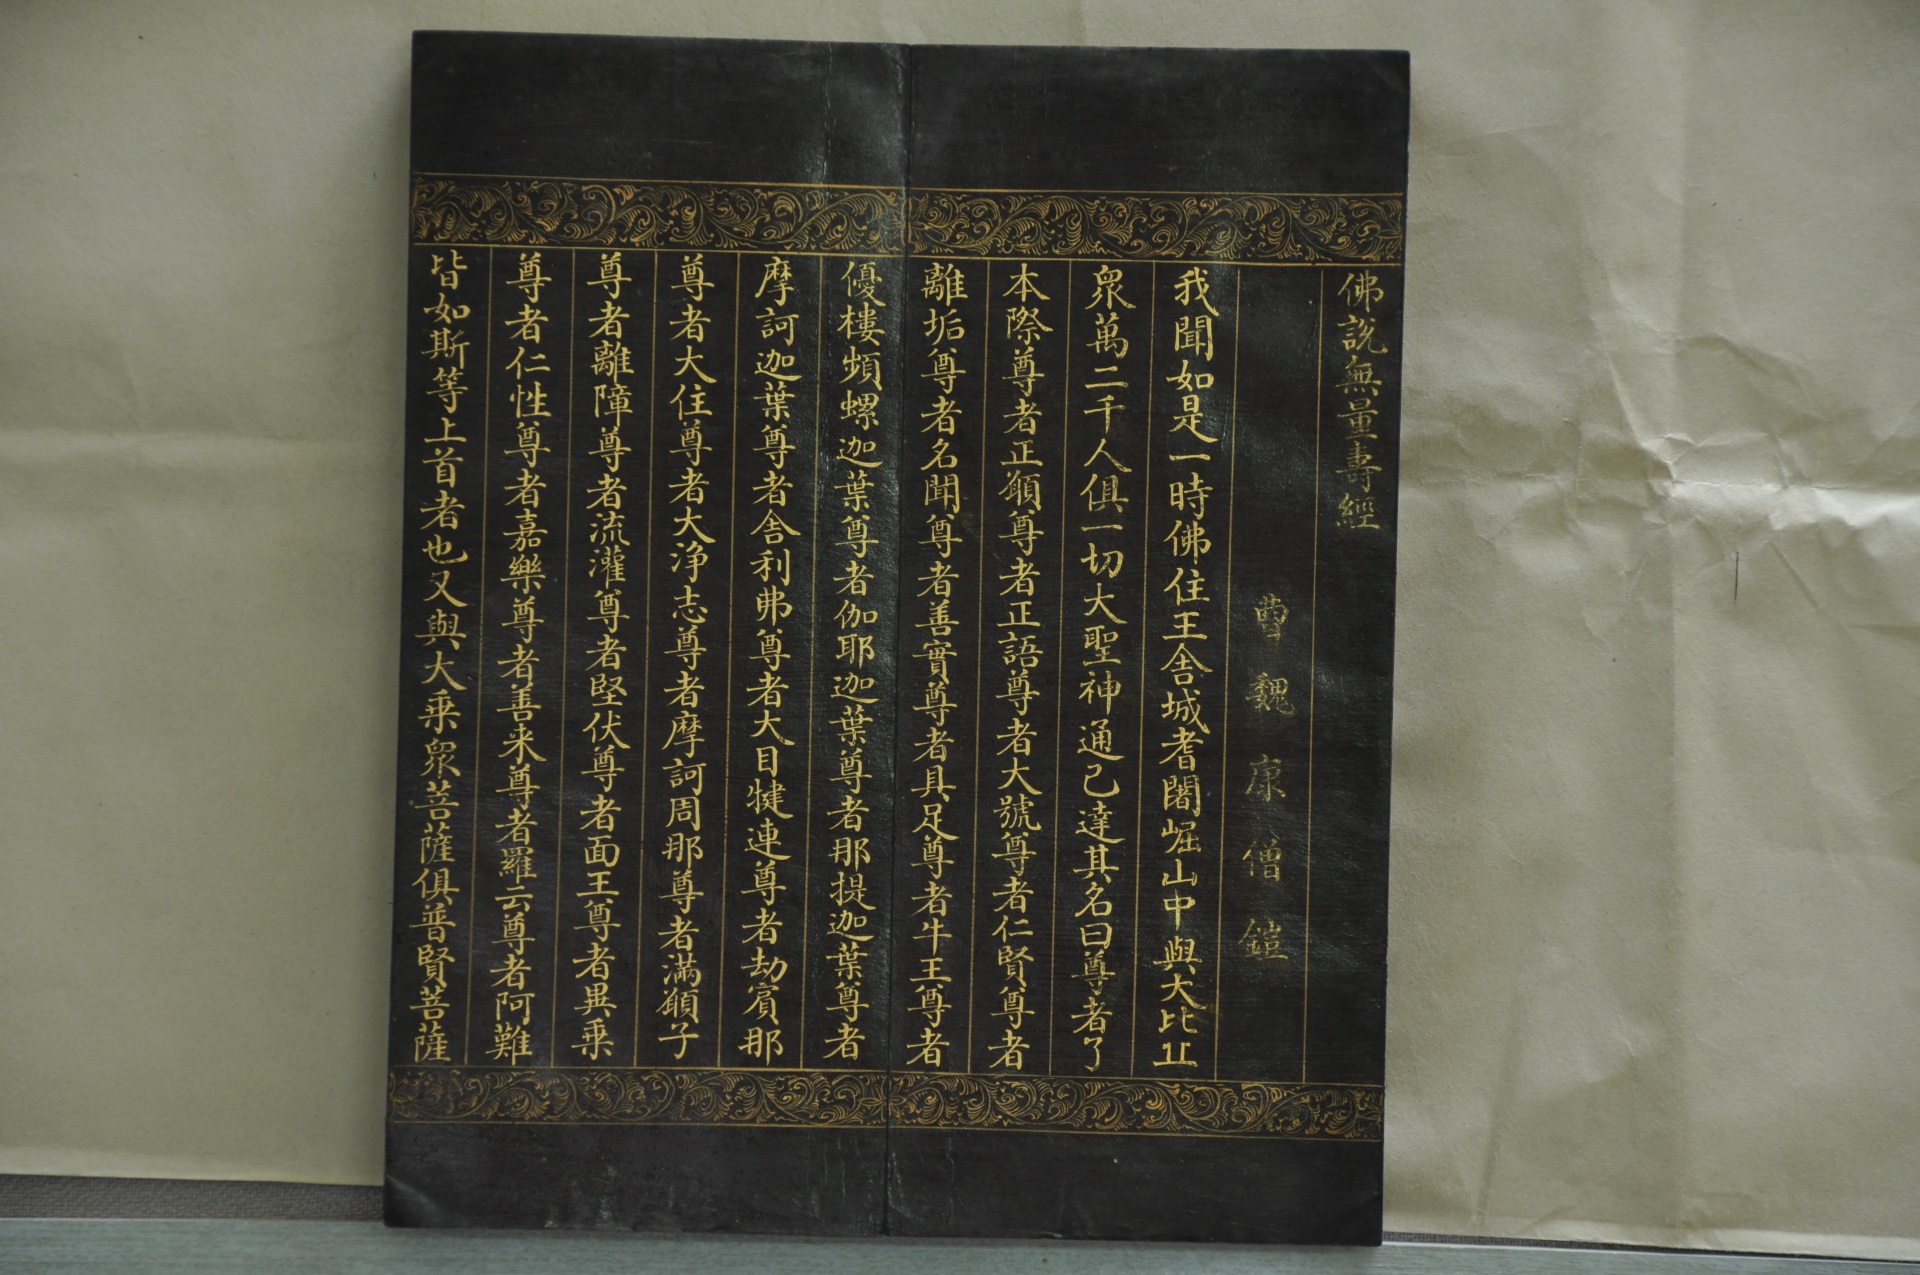 佛説無量壽經
曹魏康僧鎧
我聞如是一時佛住王舍城耆闍崛山中與大比丘
衆萬二千人俱一切大聖神通已達其名曰尊者了
本際尊者正願尊者正語尊者大號尊者仁賢尊者
離垢尊者名聞尊者善實尊者具足尊者牛王尊者
優樓頻螺迦葉尊者伽耶迦葉尊者那提迦葉尊者
摩訶迦葉尊者舍利弗尊者大目犍連尊者劫賓那
尊者大住尊者大净志尊者摩訶周那尊者滿願子
尊者離障尊者流灌尊者堅伏尊者面王尊者異乘
尊者仁性尊者嘉樂尊者善来尊者羅云尊者阿難
皆如斯等上首者也又與大乘衆菩薩俱普賢菩薩